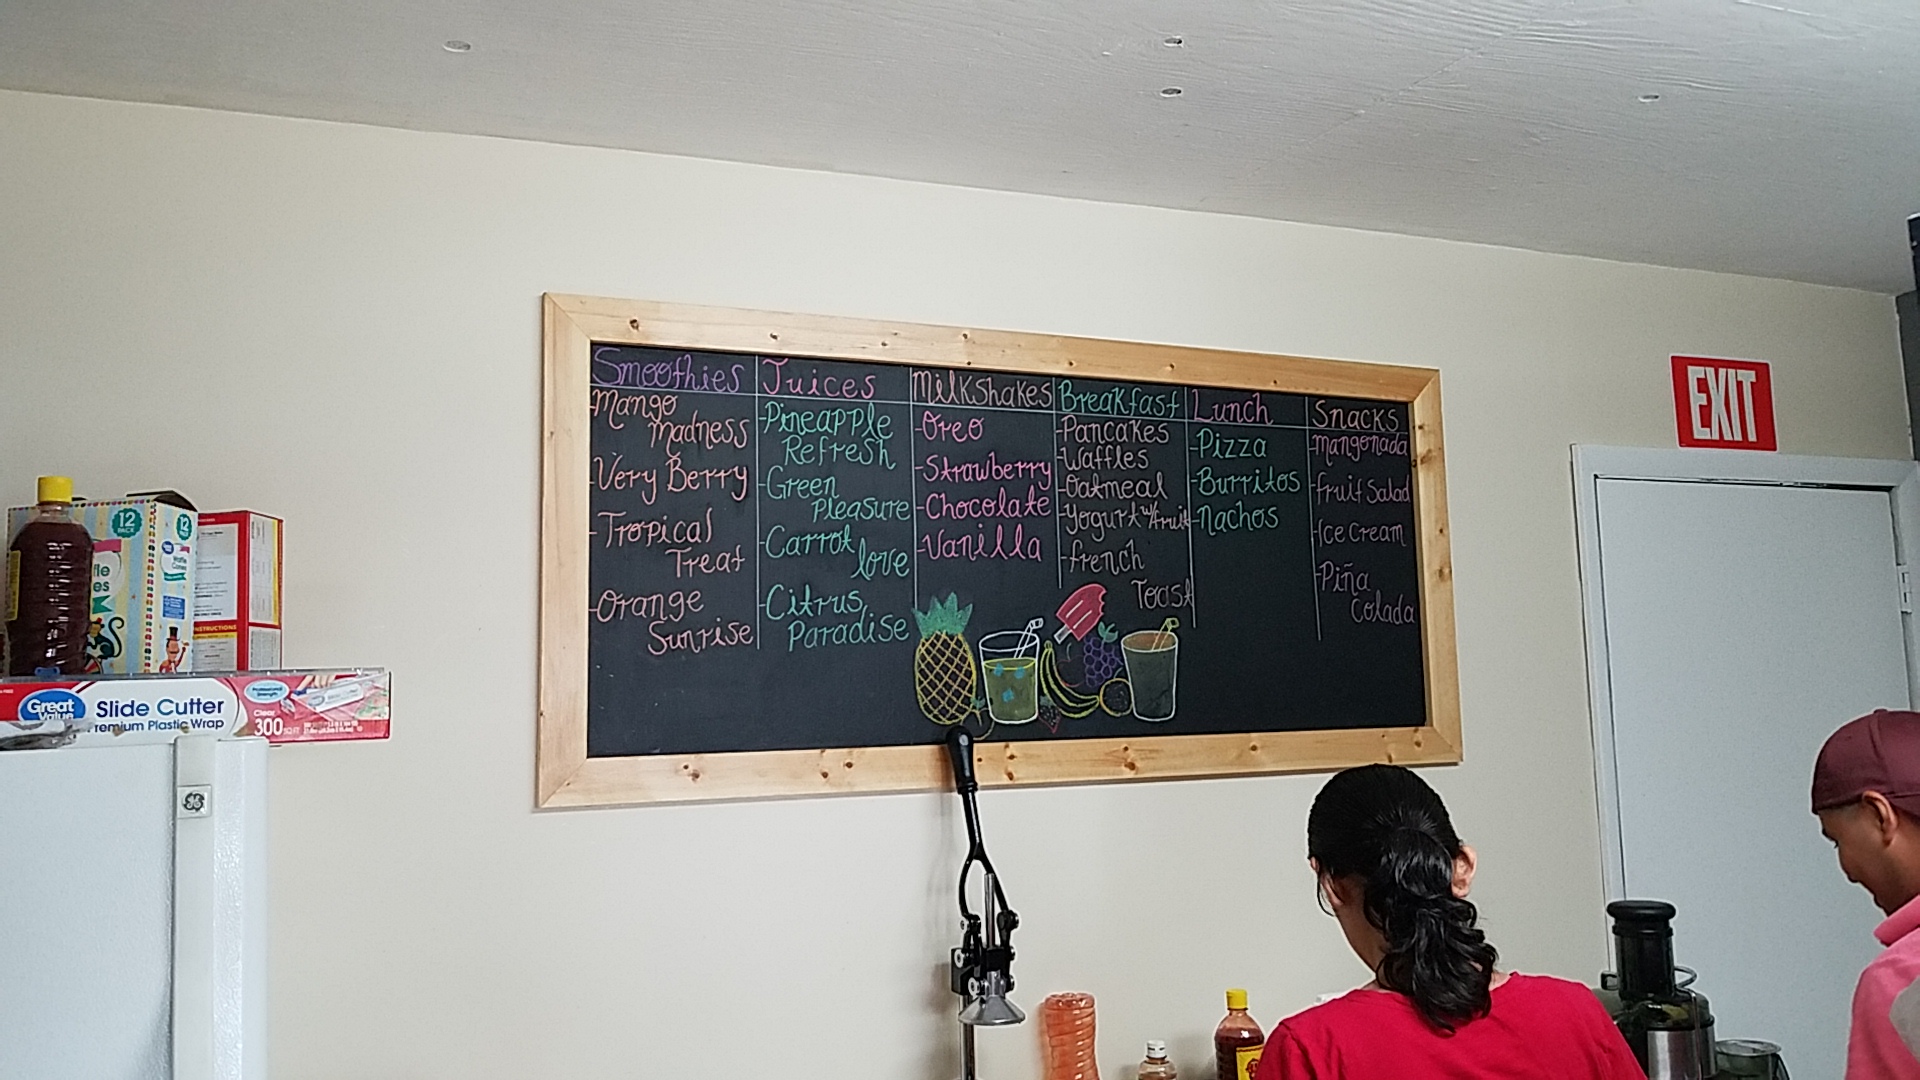 Smoothies
Mango
Madness
-Very Berry
-Tropical
Treat
-Orange
Sunrise
Juices
-Pineapple
Refresh
-Green
Pleasure
-Carrot
love
-Citrus
Paradise
Milkshakes
-Oreo
-Strawberry
-Chocolate
-Vanilla
Breakfast
-Pancakes
-Waffles
-Oatmeal
-Yogurt w/fruit
-french
Toast
Lunch
-Pizza
-Burritos
-Nachos
Snacks
-mangonada
-fruit Salad
-Ice Cream
-Piña
Colada
EXIT
12
PACK
12
INSTRUCTIONS
Great
Value
Slide Cutter
Premium Plastic Wrap
Professional
Strength
Clear
300 SQ FT